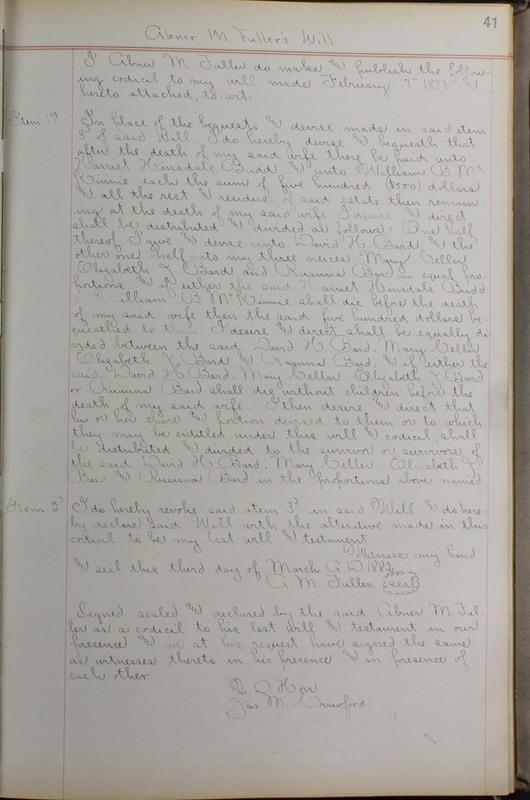 41
Abner M. Fuller's Will.
I Abner M. Fuller do make & publish the follow-
ing codical to my will made February 7" 1873 &
hereto attached, to-wit:
Item 1st In place of the bequests & devise made in said item
3d of said Will I do hereby devise & bequeath that
after the death of my said wife there be paid unto
Harriet Hinsdale Budd & unto William B. Mc
Kinnie each the sum of five hundred ($500) dollars
& all the rest & residue of said estate then remain-
ing at the death of my said wife I desire & direct
shall be distributed & divided as follows: One half
thereof I give & devise unto David H. Bard & the
other one half unto my three neices Mary Cellar
Elizabeth J Bard and Ruanna Bard in equal pro-
portions & if either the said Harriet Hinsdale Budd
William B. McKinnie shall die before the death
of my said wife then the said five hundred dollars be-
queathed to them I desire & direct shall be equally di-
vided between the said David H. Bard. Mary Cellar
Elizabeth J Bard & Ruanna Bard & if either the
said David H. Bard. Mary Cellar. Elizabeth J Bard
or Ruanna Bard shall die without children before the
death of my said wife. I then desire & direct that
his or her share & portion devised to them or to which
they may be entitled under this will & codical, shall
be distributed & divided to the survivor or survivors of
the said David H. Bard. Mary Cellar. Elizabeth J
Bard & Ruanna Bard in the proportions above named
Item 2d I do hereby revoke said item 3d in said Will & do here-
by declare said Will with the alterative made in this
codical to be my last will & testament
Witness my hand
& seal this third day of March A.D. 1882
A. M. Fuller (seal)
Signed sealed & declared by the said Abner M. Ful-
ler as a codicil to his last will & testament in our
presence & we at his request have signed the same
as witnesses thereto in his presence & in presence of
each other.
D. Horr
Jas. M. Crawford